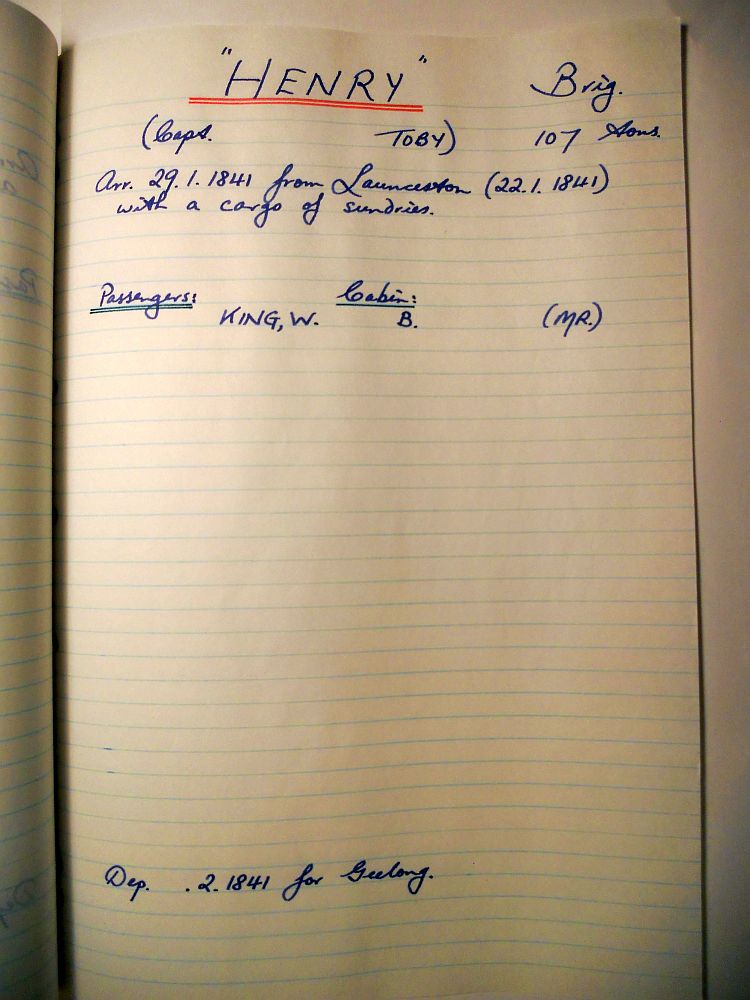 "HENRY" Brig.
(Capt. TOBY) 107 tons.
Arr. 29.1.1841 from Launceston (22.1.1841)
with a cargo of sundries.
Passengers: Cabin:
KING, W. B. (MR.)
Dep. .2.1841 for Geelong.